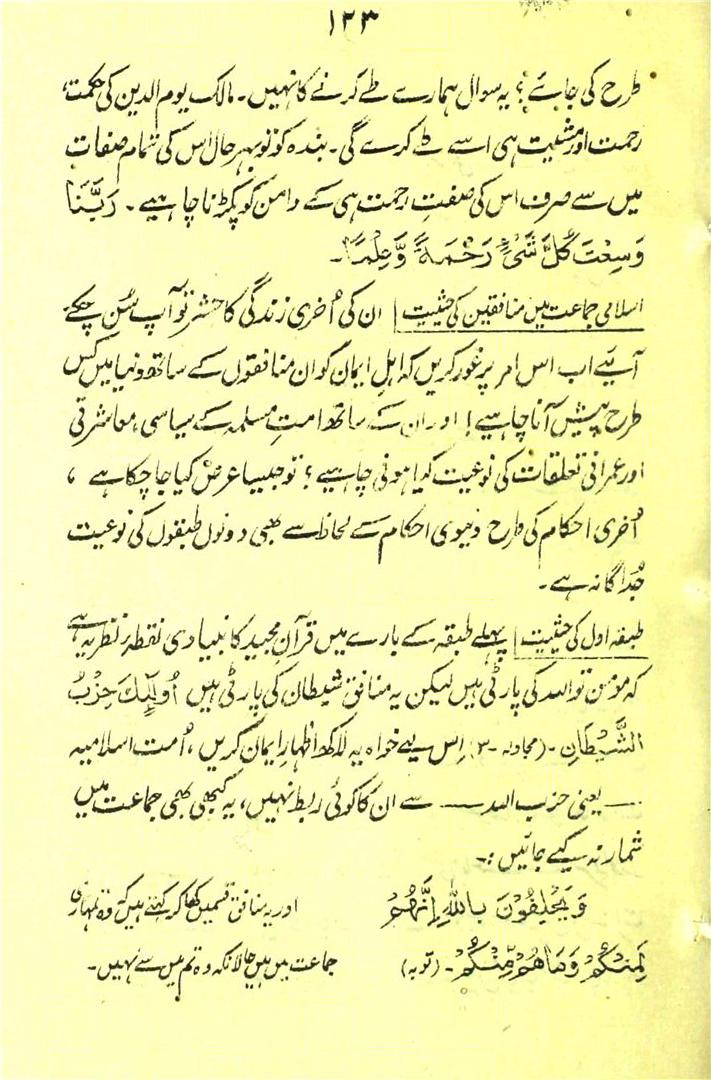 ۱۲۳
طرح کی جائے؟ یہ سوال ہمارے طے کرنے کا نہیں۔ مالک یوم الدین کی حکمت،
رحمت اور مشیت ہی اسے طے کرے گی۔ بندہ کو تو بہرحال اس کی تمام صفات
میں سے صرف اس کی صفتِ رحمت ہی کے دامن کو پکڑنا چاہیے۔ رَبَّنَا
وَسِعْتَ كُلَّ شَیْءٍ رَّحْمَةً وَّعِلْمًا۔
اسلامی جماعت میں منافقین کی حیثیت | ان کی اُخری زندگی کا حشر تو آپ سُن چکے۔
آئیے اب اس امر پر غور کریں کہ اہلِ ایمان کو ان منافقوں کے ساتھ دنیا میں کس
طرح پیش آنا چاہیے! اور ان کے ساتھ امتِ مسلمہ کے سیاسی، معاشرتی
اور عمرانی تعلقات کی نوعیت کیا ہونی چاہیے؟ تو جیسا عرض کیا جا چکا ہے،
اُخری احکام کی طرح دنیوی احکام کے لحاظ سے بھی دونوں طبقوں کی نوعیت
جُداگانہ ہے۔
طبقہ اول کی حیثیت | پہلے طبقہ کے بارے میں قرآن مجید کا بنیادی نقطہ نظر یہ ہے
کہ مؤمن تو اللہ کی پارٹی ہیں لیکن یہ منافق شیطان کی پارٹی ہیں أُولٰٓئِكَ حِزْبُ
الشَّيْطَانِ۔ (مجادلہ -۳) اِس لیے خواہ یہ لاکھ اظہارِ ایمان کریں، اُمت اسلامیہ
—— یعنی حزب اللہ —— سے ان کا کوئی ربط نہیں، یہ کبھی بھی جماعت میں
شمار نہ کیے جائیں :۔
وَيَحْلِفُوْنَ بِاللّٰهِ اِنَّهُمْ
لَمِنْكُمْ وَمَا هُمْ مِّنْكُمْ۔ (توبہ)
اور یہ منافق قسمیں کھا کر کہتے ہیں کہ وہ تمہاری
جماعت میں ہیں حالانکہ وہ تم میں سے نہیں۔